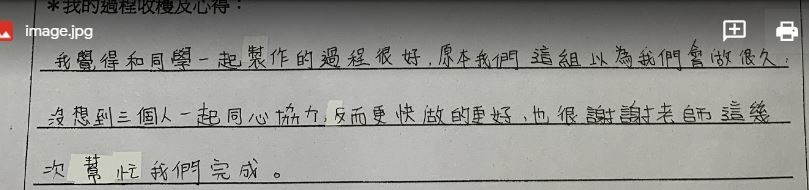 *我的過程收穫及心得：
image.jpg
我覺得和同學一起製作的過程很好,原本我們這組以為我們會做很久,
沒想到三個人一起同心協力,反而更快做的更好,也很謝謝老師這幾
次幫忙我們完成。